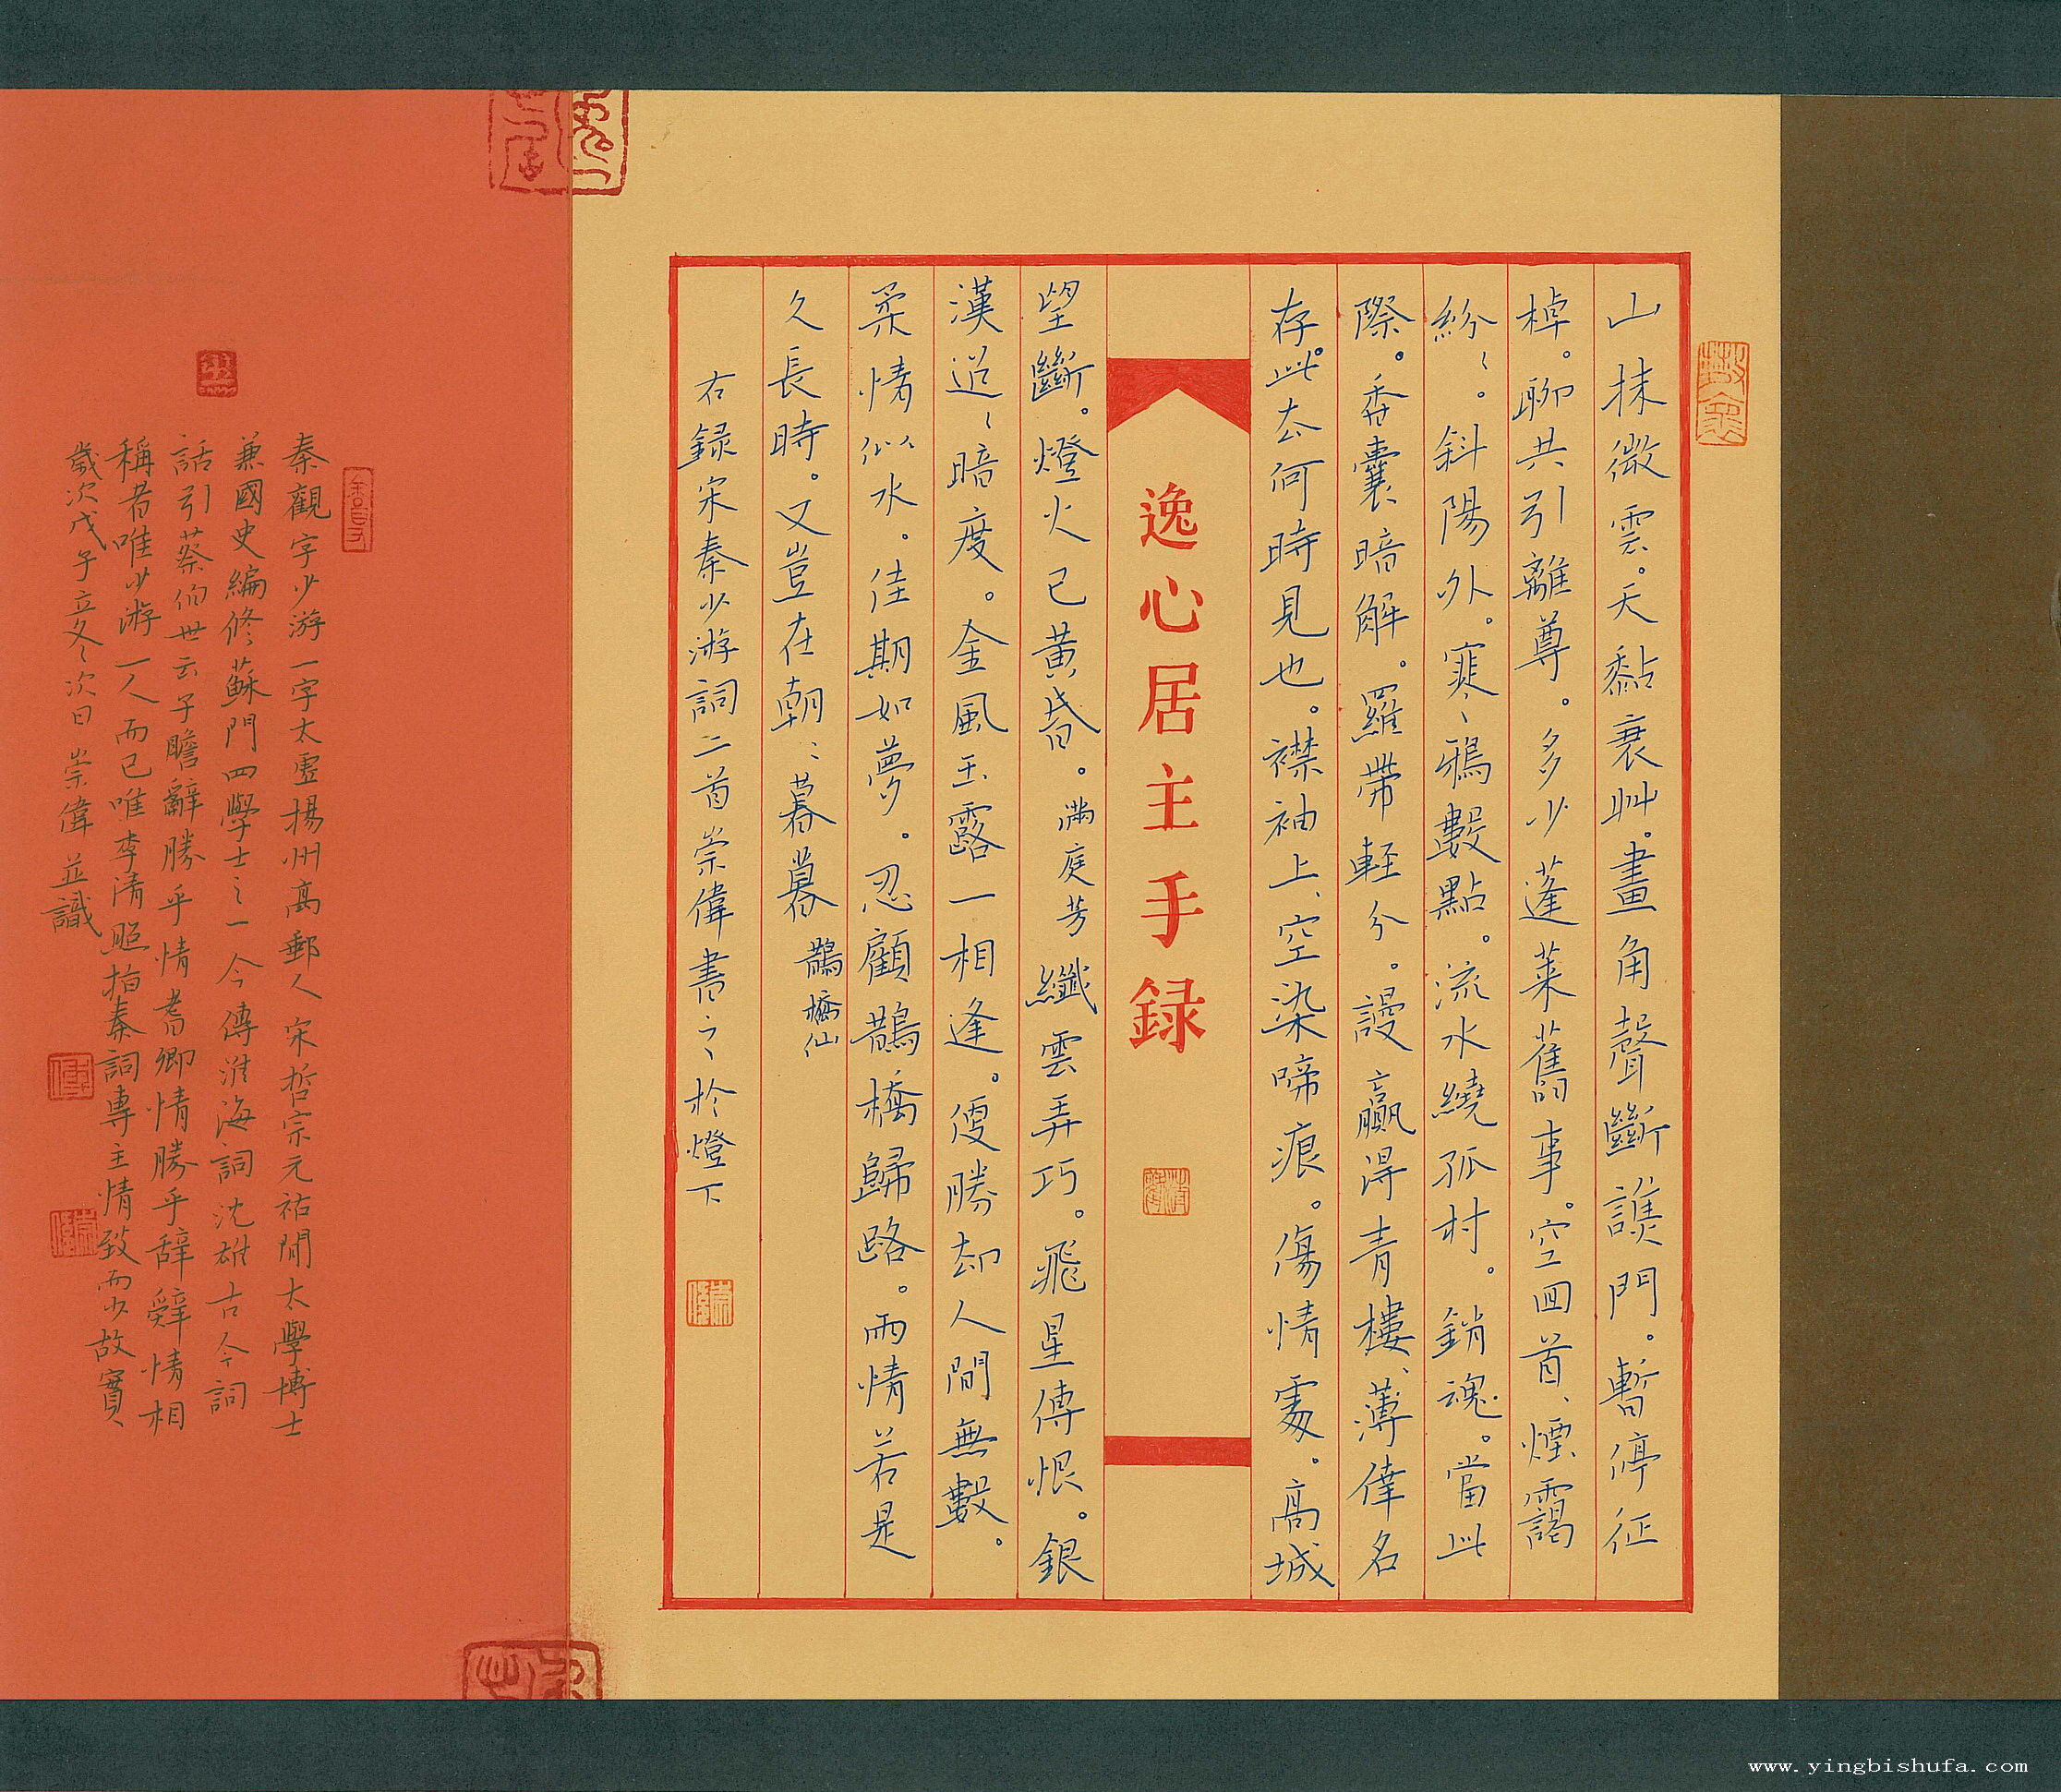 山抹微雲。天黏衰艸。畫角聲斷譙門。暫停征
棹。聊共引離尊。多少蓬萊舊事。空回首、煙靄
紛〻。斜陽外。寒〻鴉數點。流水繞孤村。銷魂。當此
際。香囊暗解。羅帶輕分。謾贏得青樓、薄倖名
存。此去何時見也。襟袖上、空染啼痕。傷情處。高城
逸心居主手録
望斷。燈火已黃昏。滿庭芳 纖雲弄巧。飛星傳恨。銀
漢迢〻暗度。金風玉露一相逢。便勝却人間無數。
柔情似水。佳期如夢。忍顧鵲橋歸路。兩情若是
久長時。又豈在朝〻暮暮 鵲橋仙
右録宋秦少游詞二首崇偉書之於燈下
秦觀字少游一字太虛揚州高郵人宋哲宗元祐間太學博士
兼國史編修蘇門四學士之一今傳淮海詞沈雄古今詞
話引蔡伯世云子瞻辭勝乎情耆卿情勝乎辭辭情相
稱者唯少游一人而已唯李清照指秦詞專主情致而少故實
歲次戊子立冬次日 崇偉並識
www.yingbishufa.com